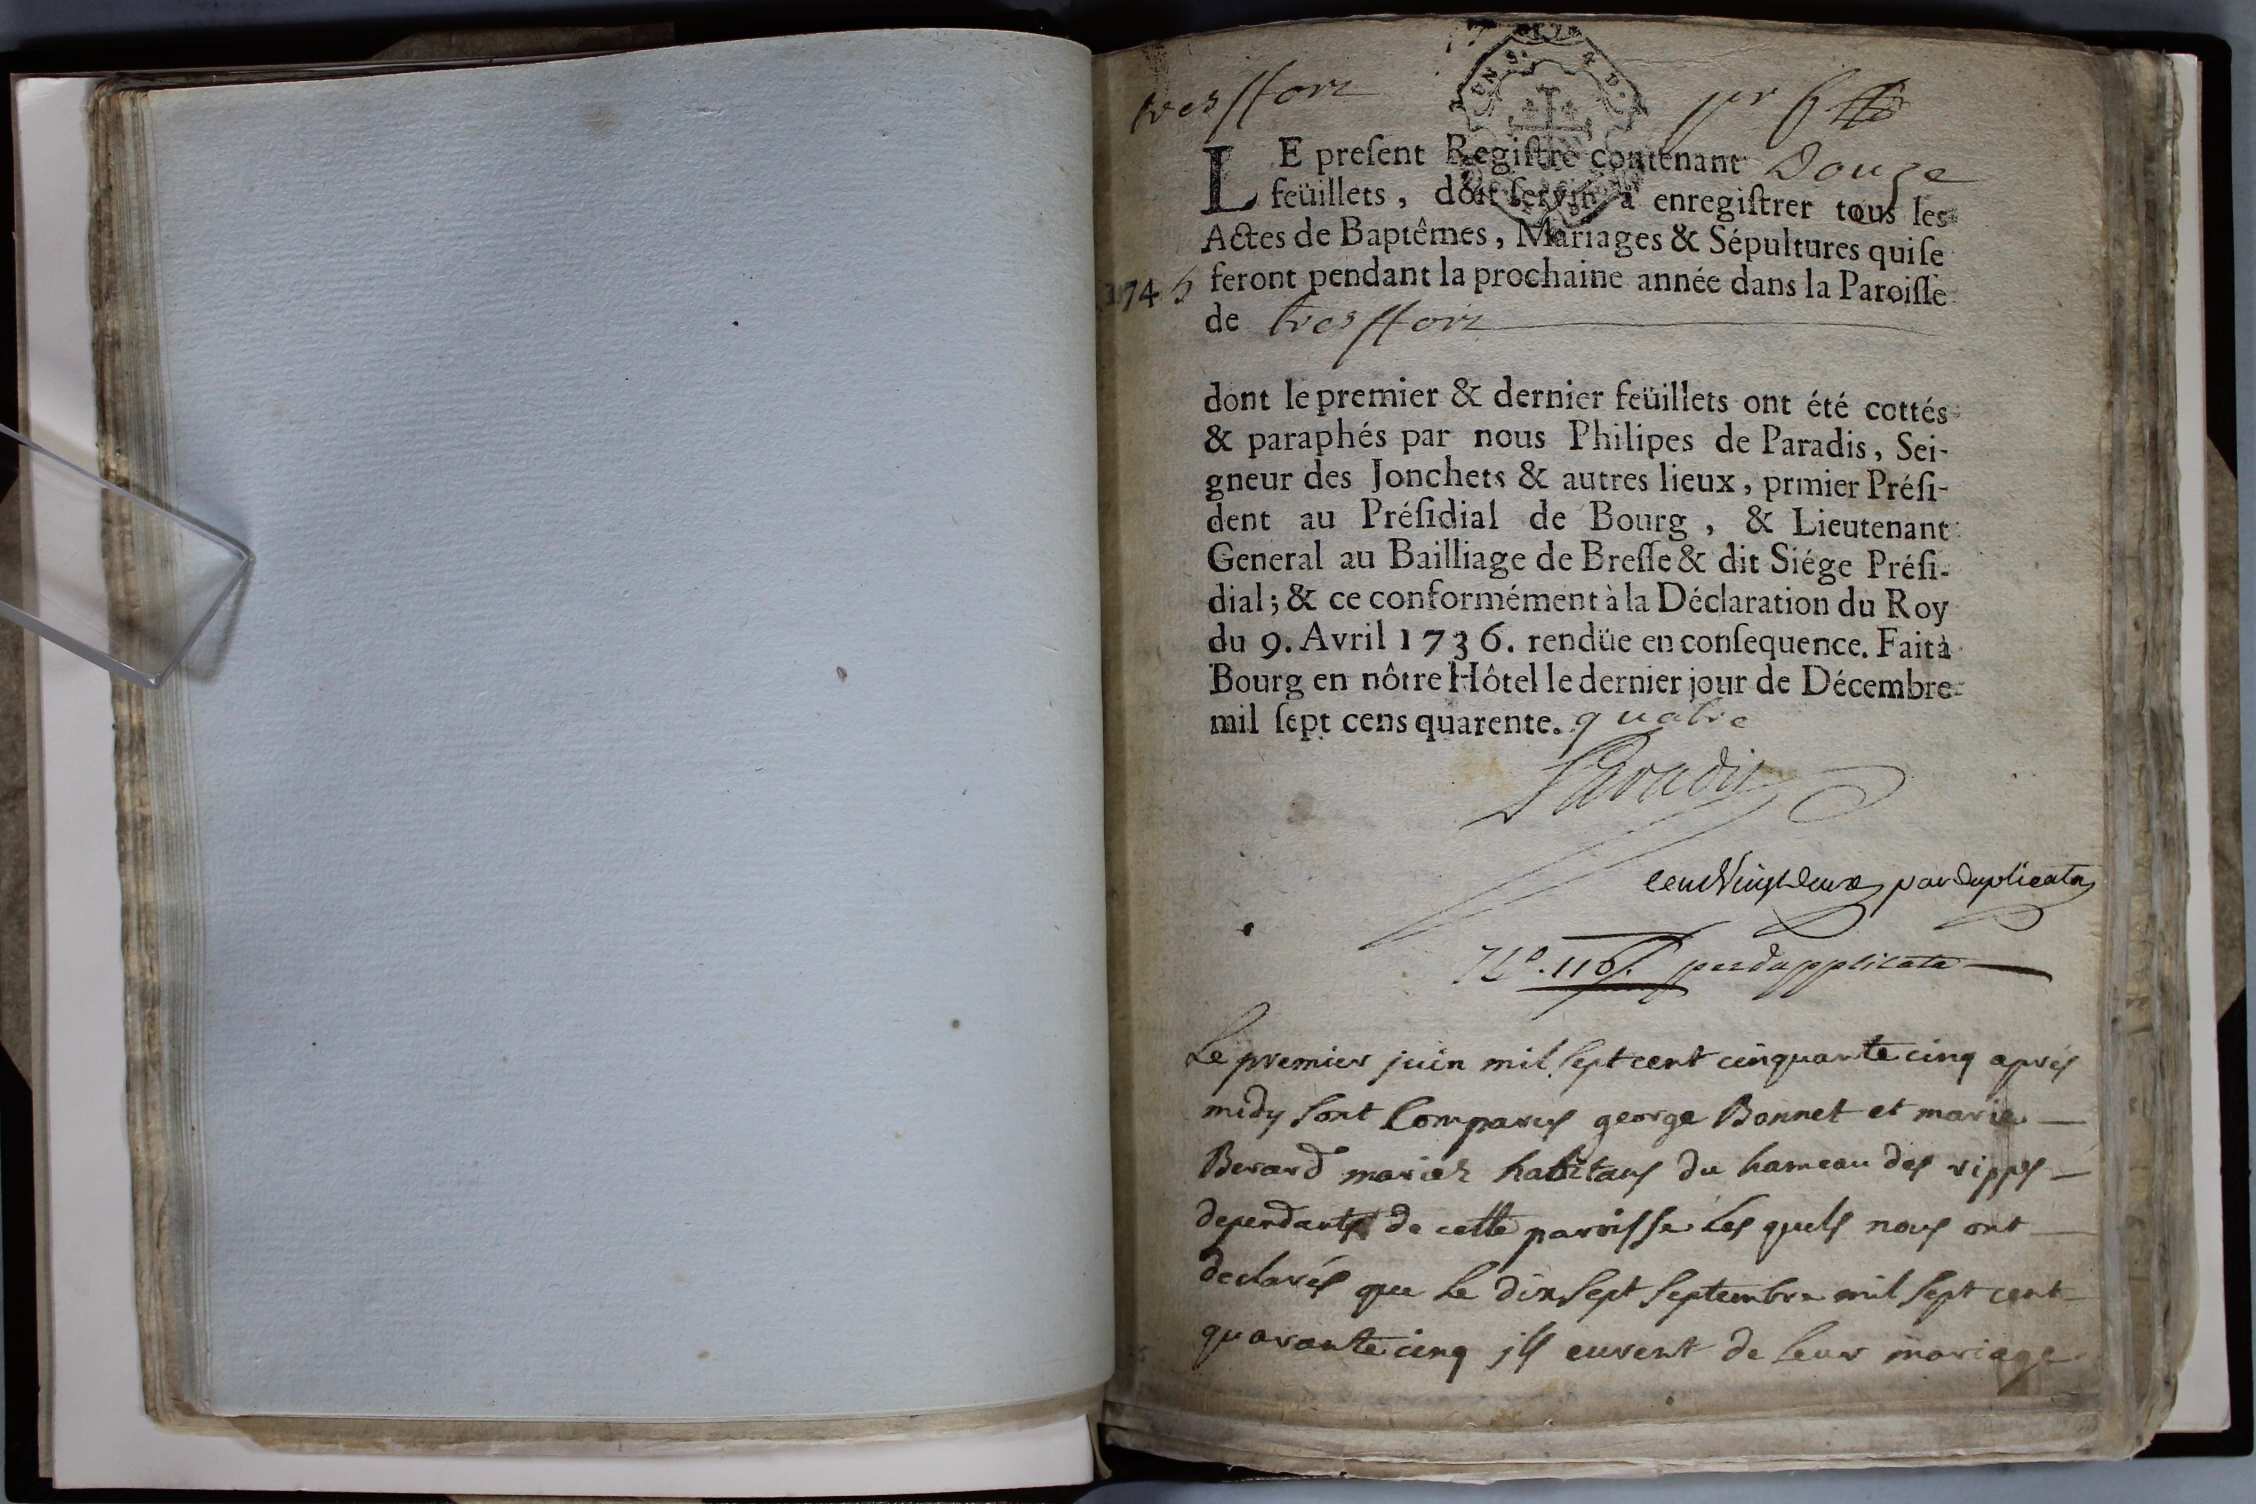 tresffort
LE preſent Regiſtre contenant Douze
feüillets, doit ſervir à enregiſtrer tous les
Actes de Baptêmes, Mariages & Sépultures qui ſe
1745 feront pendant la prochaine année dans la Paroiſſe
de tresffort
dont le premier & dernier feüillets ont été cottés
& paraphés par nous Philipes de Paradis, Sei-
gneur des Jonchets & autres lieux, prmier Préſi-
dent au Préſidial de Bourg, & Lieutenant
General au Bailliage de Breſſe & dit Siége Préſi-
dial; & ce conformément à la Déclaration du Roy
du 9. Avril 1736. rendüe en conſequence. Fait à
Bourg en nôtre Hôtel le dernier jour de Décembre
mil ſept cens quarente. quatre
Paradis
cent Vingt deux par duplicata
N°. 116. per dupplicata
Le premier juin mil sept cent cinquante cinq aprés
midy sont Comparus george Bonnet et marie
Berard mariez habitans du hameau des ripps
dependants de cette paroisse Les quels nous ont
declarés que Le dix sept septembre mil sept cent
quarante cinq ils eurent de Leur mariage